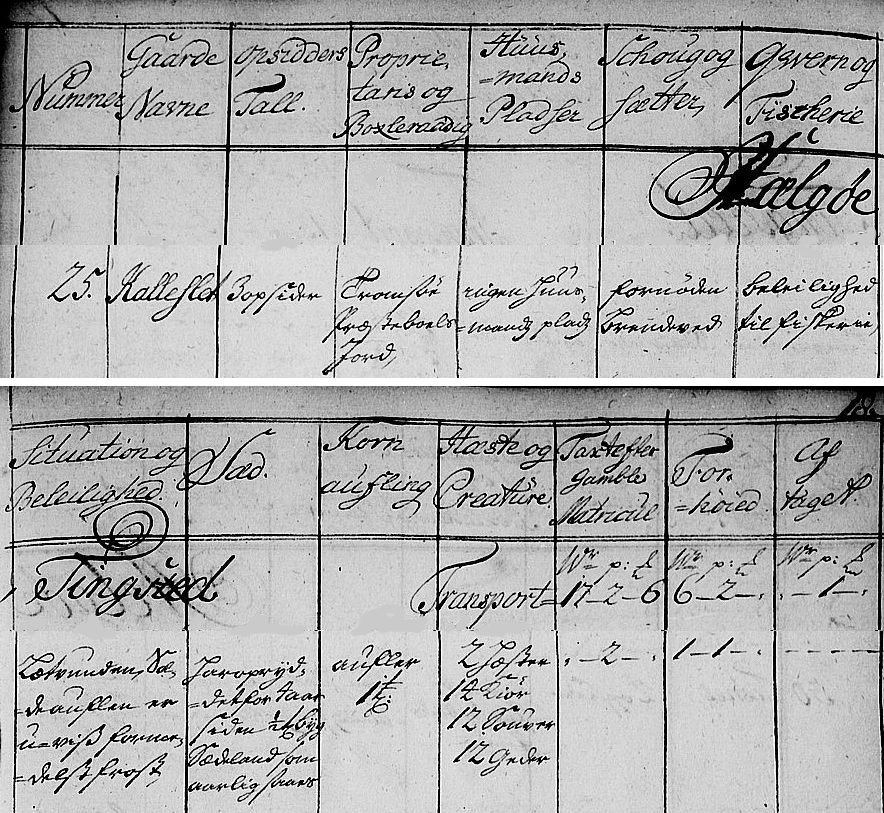 Nummer
Gaarde
Navne
opsidders
Tall.
Proprie,
taris og
Boxleraadig
Huus,
=mands
Pladser
Schoug og
sætter,
Qvern og
Fischerie
Hælgøe
25.
Kalleslet
3 opsider
Tromsøe
Præsteboels
Jord,
ingen huus,
=mands plads
fornøden
brendeved
beleilighed
til fiskerie,
Situation og
Beleilighed.
Sæd.
Korn
aufling
Hæste og
Creature
Taxt efter
Gamble
Matricul
For,
=høied
Af
taget.
Tingsted
Transport=
Wr p: L
17-2-6
Wr p: L
6-2-.
Wr p: L
.-1-.
Lætvunden, Sæ,
=de auflen er
u=viss forme,
=delst frost
har opryd,
=det for 4 aar
siden ½ t byg
Sædeland som
aarlig saaes
aufler
1 t:
2 hæster
14 Kiør
12 Souver
12 Geder
.-2-.
1-1-.